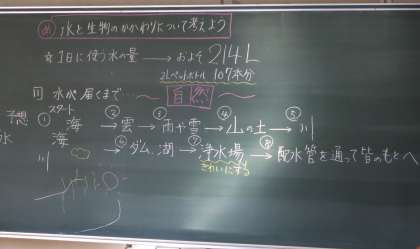 め 水と生物のかかわりについて考えよう
☆1日に使う水の量 → およそ 214L
2Lペットボトル 107本分
① 水が届くまで… 自然
予想 スタート
①海 → ②雲 → ③雨や雪 → ④山の土 → ⑤川
水 海 → ⑥ダム、湖 → ⑦浄水場 → ⑧配水管を通って皆のもとへ
川 きれいにする